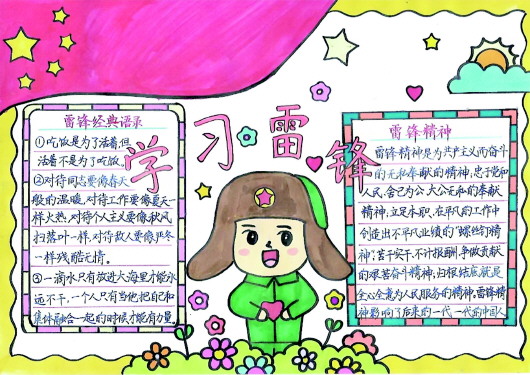 学习雷锋
雷锋经典语录
①吃饭是为了活着,但
活着不是为了吃饭。
②对待同志要像春天
般的温暖,对待工作要像夏天一
样火热,对待个人主义要像秋风
扫落叶一样,对待敌人要像严冬
一样残酷无情。
③一滴水只有放进大海里才能永
远不干,一个人只有当他把自己和
集体融合一起的时候才能有力量。
雷锋精神
雷锋精神是为共产主义而奋斗
的无私奉献的精神,忠于党和
人民、舍己为公、大公无私的奉献
精神,立足本职、在平凡的工作中
创造出不平凡业绩的“螺丝钉精
神”,苦干实干、不计报酬、争做贡献
的艰苦奋斗精神,归根结底就是
全心全意为人民服务的精神。雷锋精
神影响了后来的一代一代的中国人